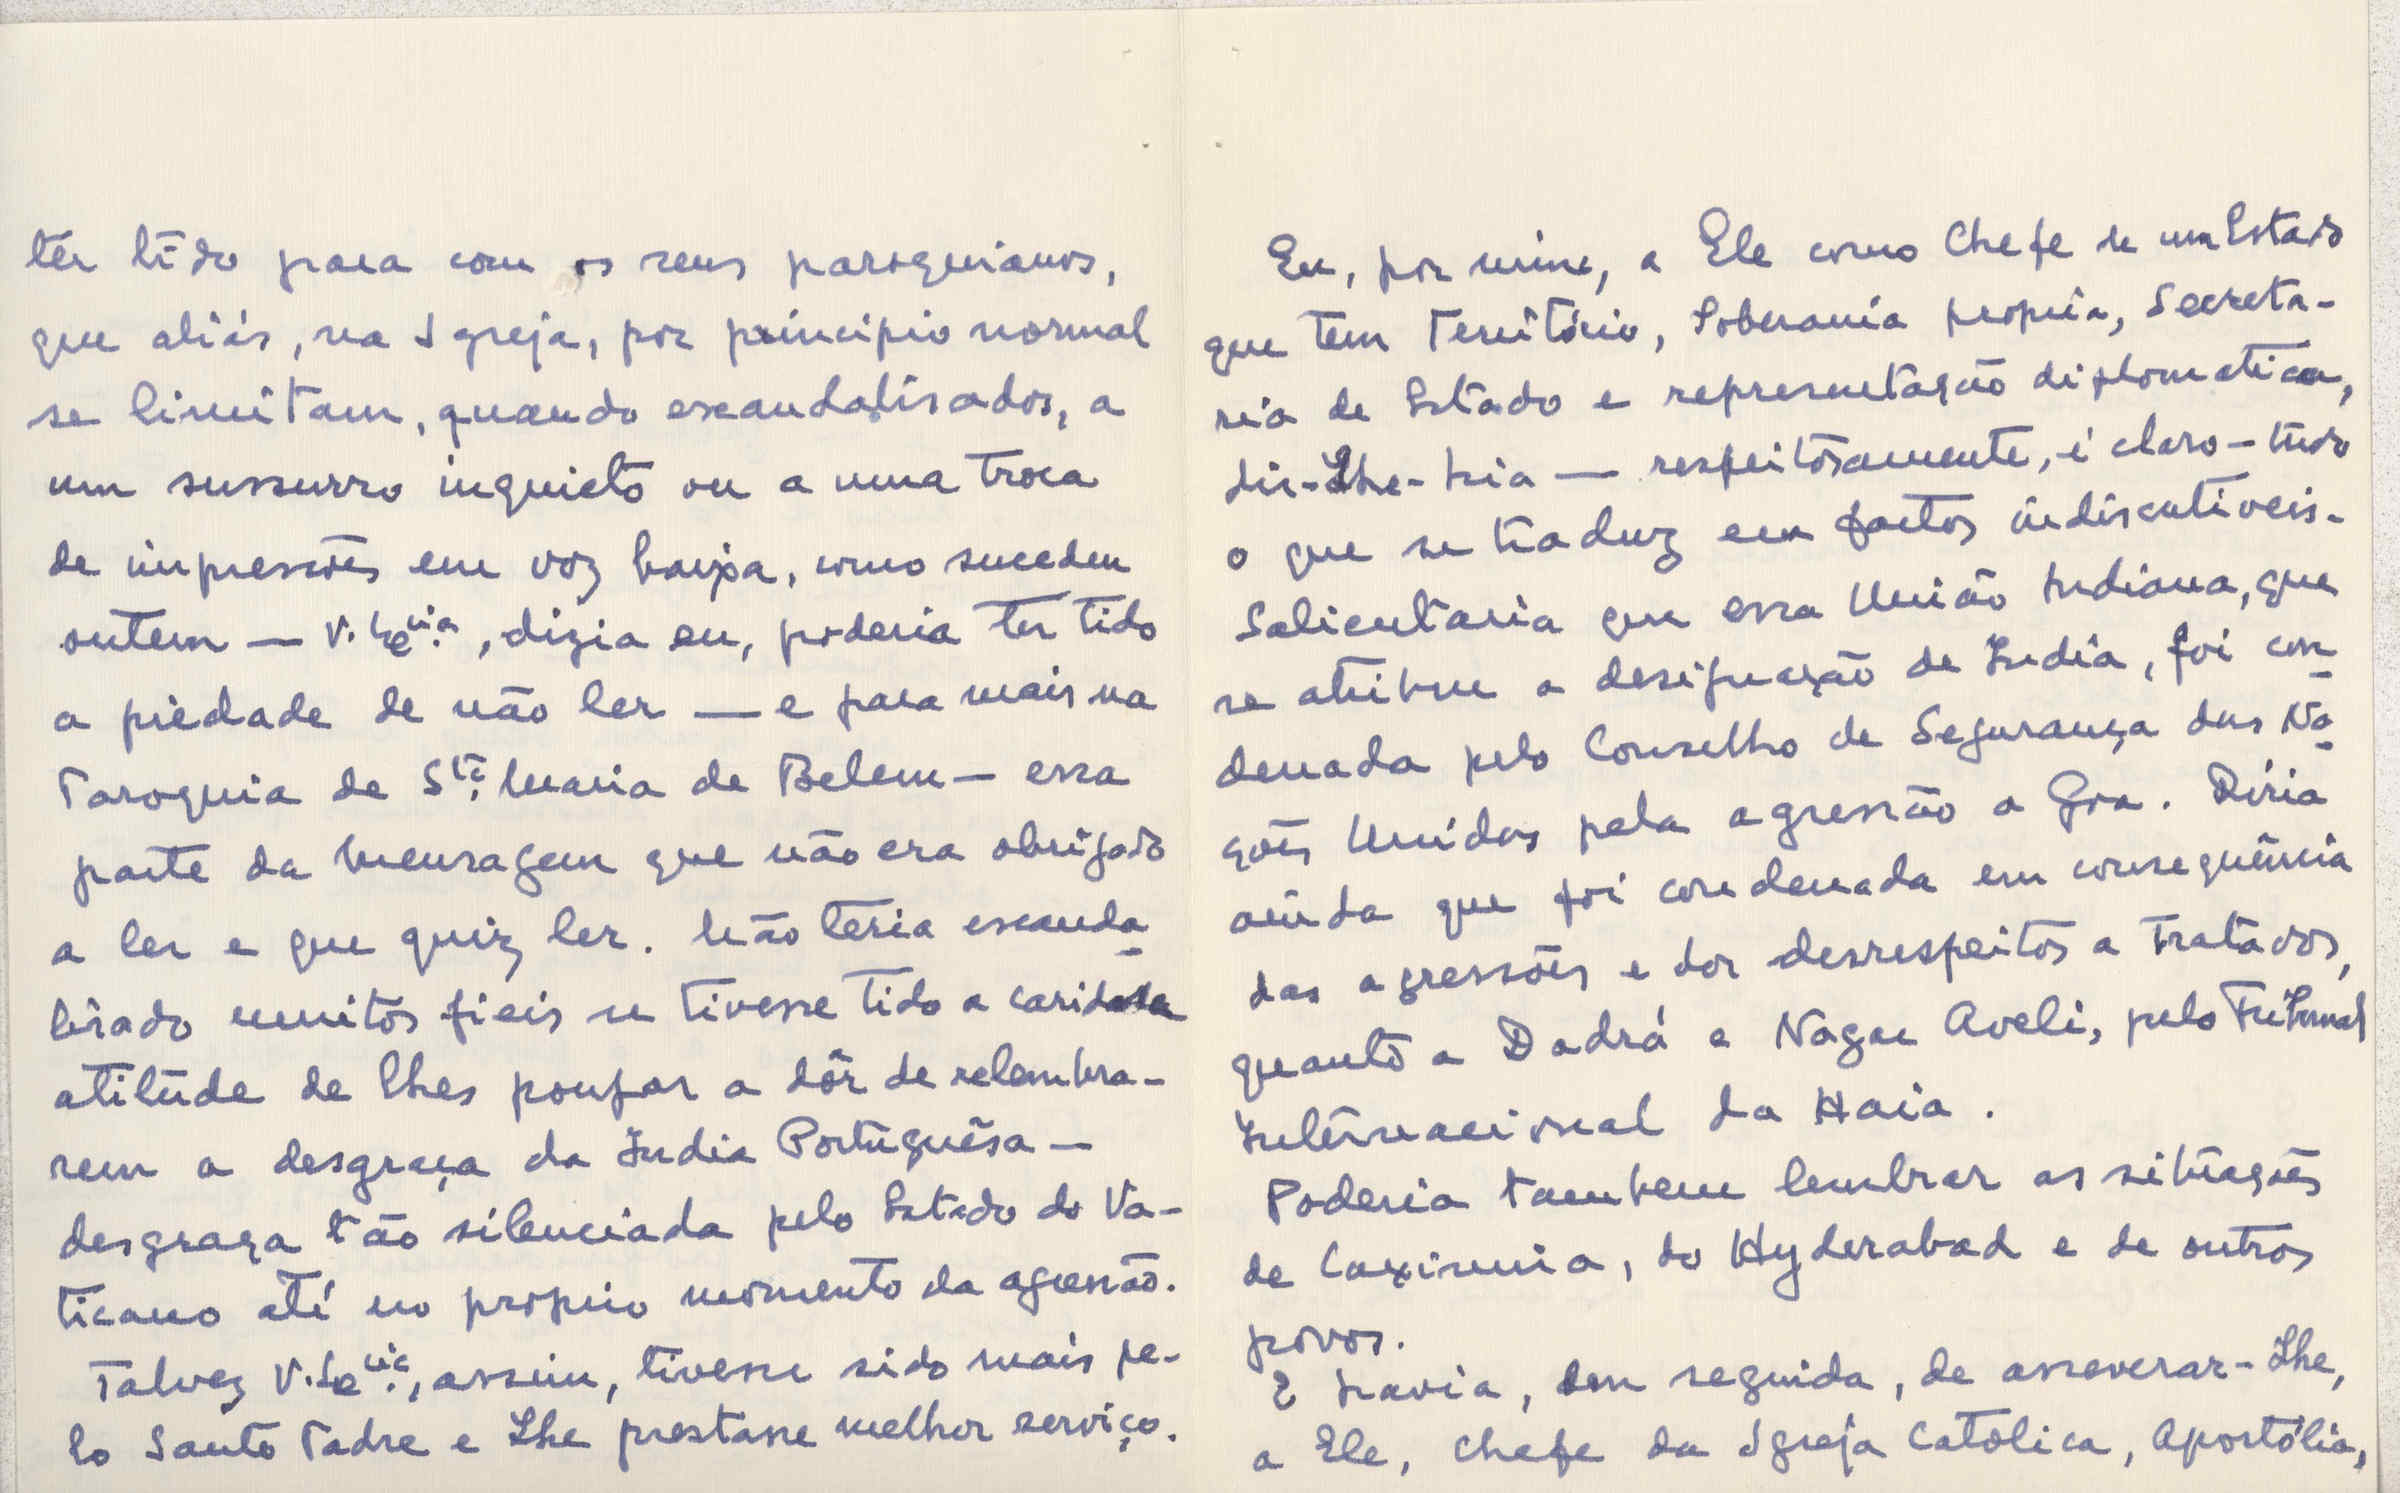 ter tido para com os seus paroquianos,
que aliás, na Igreja, por principio normal
se limitam, quando escandalisados, a
um sussurro inquieto ou a uma troca
de impressões em voz baixa, como sucedeu
ontem — V. Exª., dizia eu, poderia ter tido
a piedade de não ler — e para mais na
Paroquia de Stª. Maria de Belem — essa
parte da Mensagem que não era obrigado
a ler e que quiz ler. Não teria escanda
lisado muitos fieis se tivesse tido a caridosa
atitude de lhes poupar a dôr de relembra-
rem a desgraça da India Portuguêsa —
desgraça tão silenciada pelo Estado do Va-
ticano até no proprio momento da agressão.
Talvez V. Exª., assim, tivesse sido mais pe-
lo Santo Padre e Lhe prestasse melhor serviço.
Eu, por mim, a Ele como Chefe de um Estado
que tem Território, Soberania propria, Secreta-
ria de Estado e representação diplomatica,
dir-Lhe-hia — respeitosamente, é claro — tudo
o que se traduz em factos indiscutiveis.
Salientaria que essa União Indiana, que
se atribue a designação de India, foi con
denada pelo Conselho de Segurança das Na
ções Unidas pela agressão a Goa. Diria
ainda que foi condenada em consequência
das agressões e dos desrespeitos a Tratados,
quanto a Dadrá e Nagar Aveli, pelo Tribunal
Internacional da Haia.
Poderia tambem lembrar as situações
de Caximira, do Hyderabad e de outros
povos.
E havia, em seguida, de asseverar-Lhe,
a Ele, Chefe da Igreja Catolica, Apostólica,